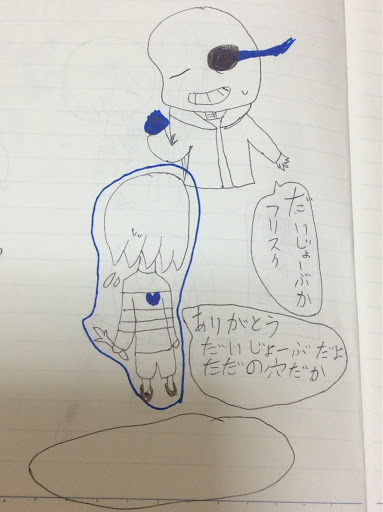 だいじょーぶか
フリスク
ありがとう
だいじょーぶだよ
ただの穴だか